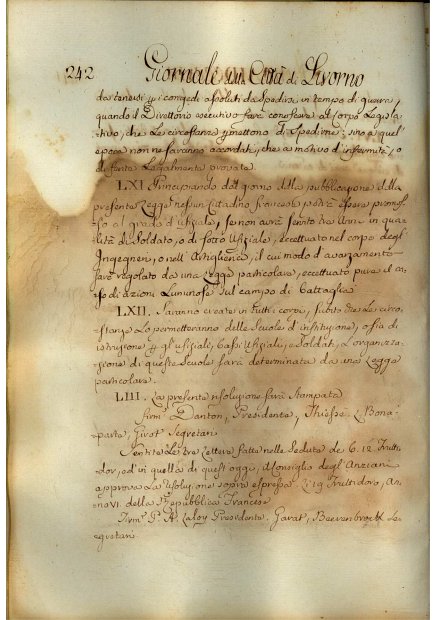 242 Giornale della Città di Livorno
da tenersi p i congedi assoluti da spedirsi in tempo di guerra,
quando il Direttorio esecutivo farà conoscere al Corpo Legisla
tivo, che le circostanze pmettono di spedirne: sino a quell'
epoca non ne saranno accordati, che a motivo d'infirmità, o
difetti legalmente provati.
LXI. Principiando dal giorno della pubblicazione della
presente Legge nessun Cittadino francese potrà essere promos
so al grado d'ufiziale, se non avrà servito tre anni in qua
lità di soldato, o di sotto Ufiziale, eccettuato nel corpo degl'
Ingegneri, o nell'Artiglieria, il cui modo d'avanzamento
sarà regolato da una Legge particolare, eccettuato pure il ca
so di azioni luminose sul campo di battaglia
LXII. Saranno create in tutti i corpi, subito che le circo
stanze lo permetteranno delle Scuole d'instituzione, o sia di
istruzione p gl'ufiziali, bassi Ufiziali, e Soldati. L'organizza
zione di queste Scuole sarà determinata da una Legge
particolare.
LIII. La presente risoluzione sarà stampata
firm. Presidente, Bona
parte, Segretari
Sentite le tre letture fatte nelle sedute de 6. 12 Frutti
dor, ed in quella di quest'oggi, il Consiglio degl'Anziani
approva la risoluzione sopra espressa. Li 19 Fruttidoro, An
no VI. della Repubblica Francese
Firm. P. A. Laloy Presidente. Garat, Beerenbroek Se
gretari